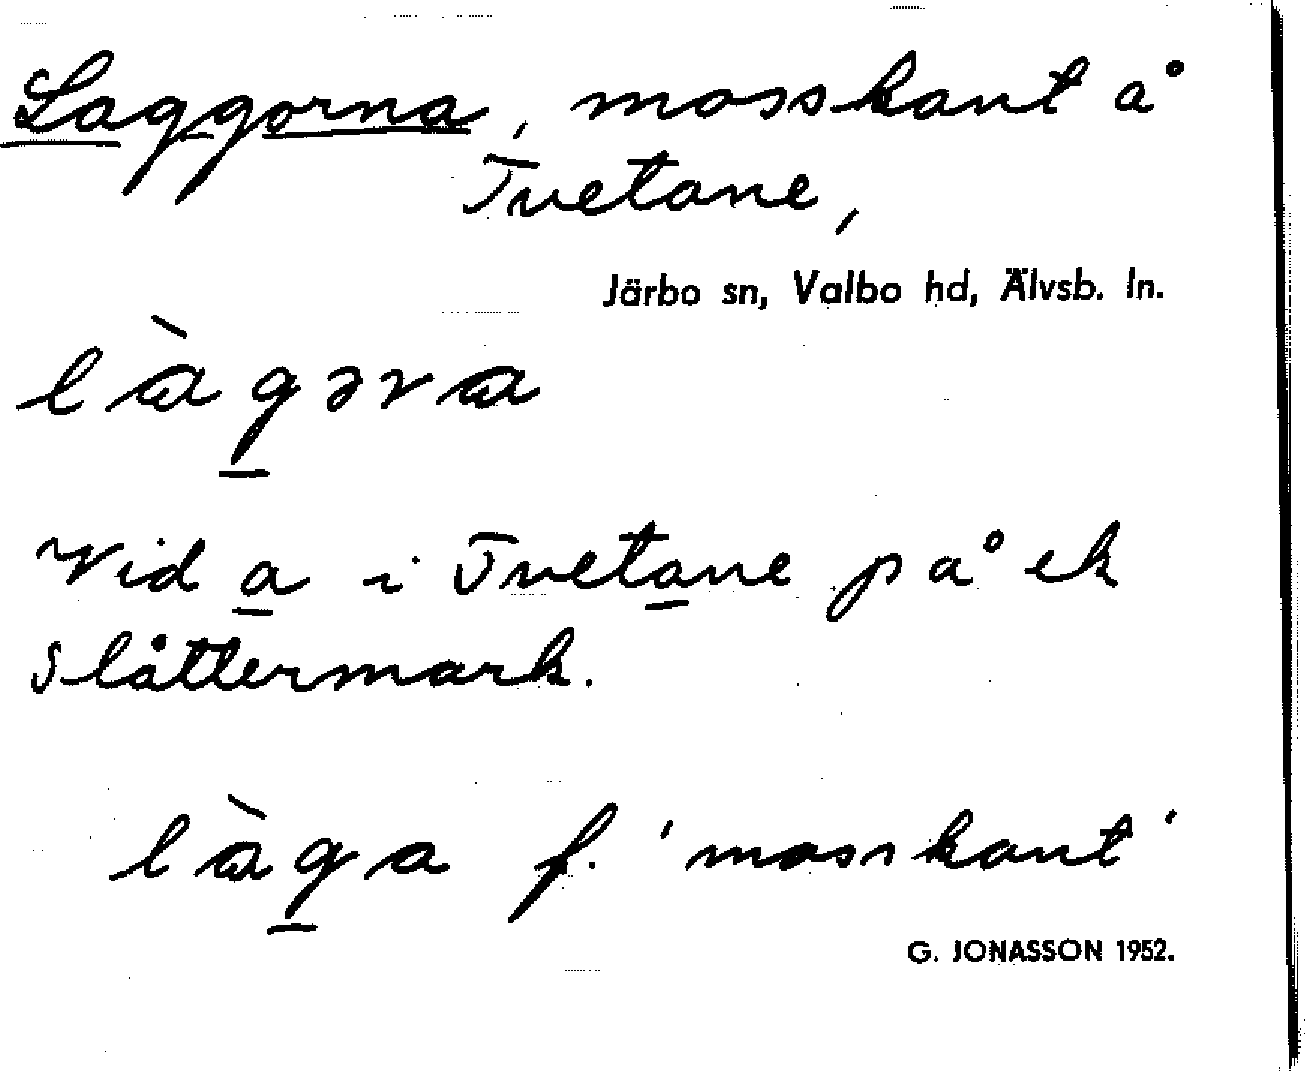 Laggorna, mosskant å
Tvetane,
Järbo sn, Valbo hd, Älvsb. ln.
làgəra
Vid a i Tvetane på ek
slåttermark.
làga f. 'mosskant'
G. JONASSON 1952.